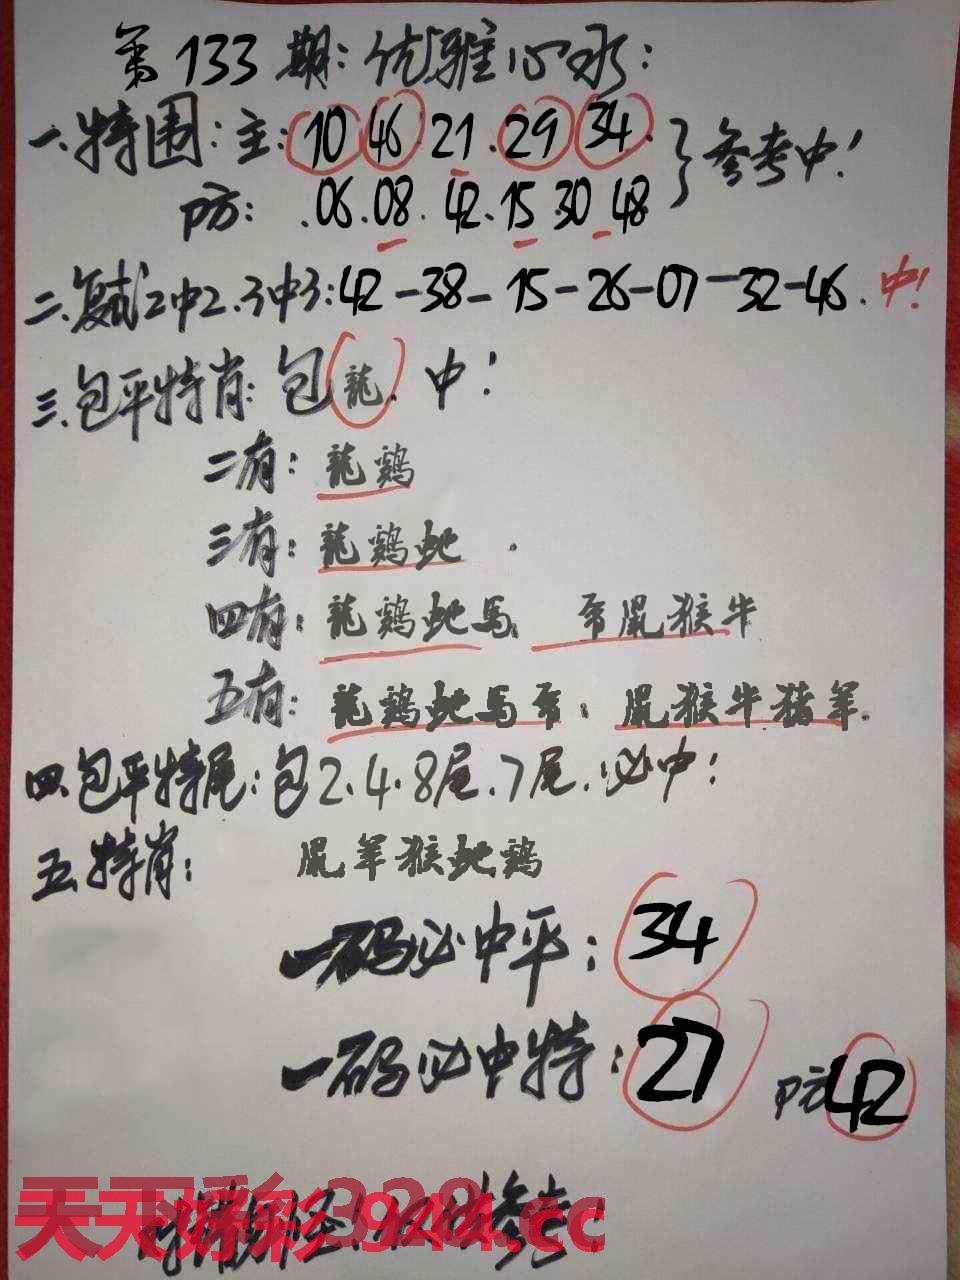 第133期：优雅心水：
一、特围：主：10 46 21．29 34．参考中！
防：．06．08．42．15 30 48
二、复式2中2．3中3：42－38－15－26－07－32－46．中！
三、包平特肖：包龍．中！
二有：龍鷄
三有：龍鷄蛇．
四有：龍鷄蛇馬、帝鼠猴牛
五有：龍鷄蛇馬帝：鼠猴牛猪羊．
四、包平特尾：包2．4．8尾．7尾．必中！
五、特肖：鼠羊猴蛇鷄
一码必中平：34
一码必中特：27 防42
参考
天天好彩944.cc